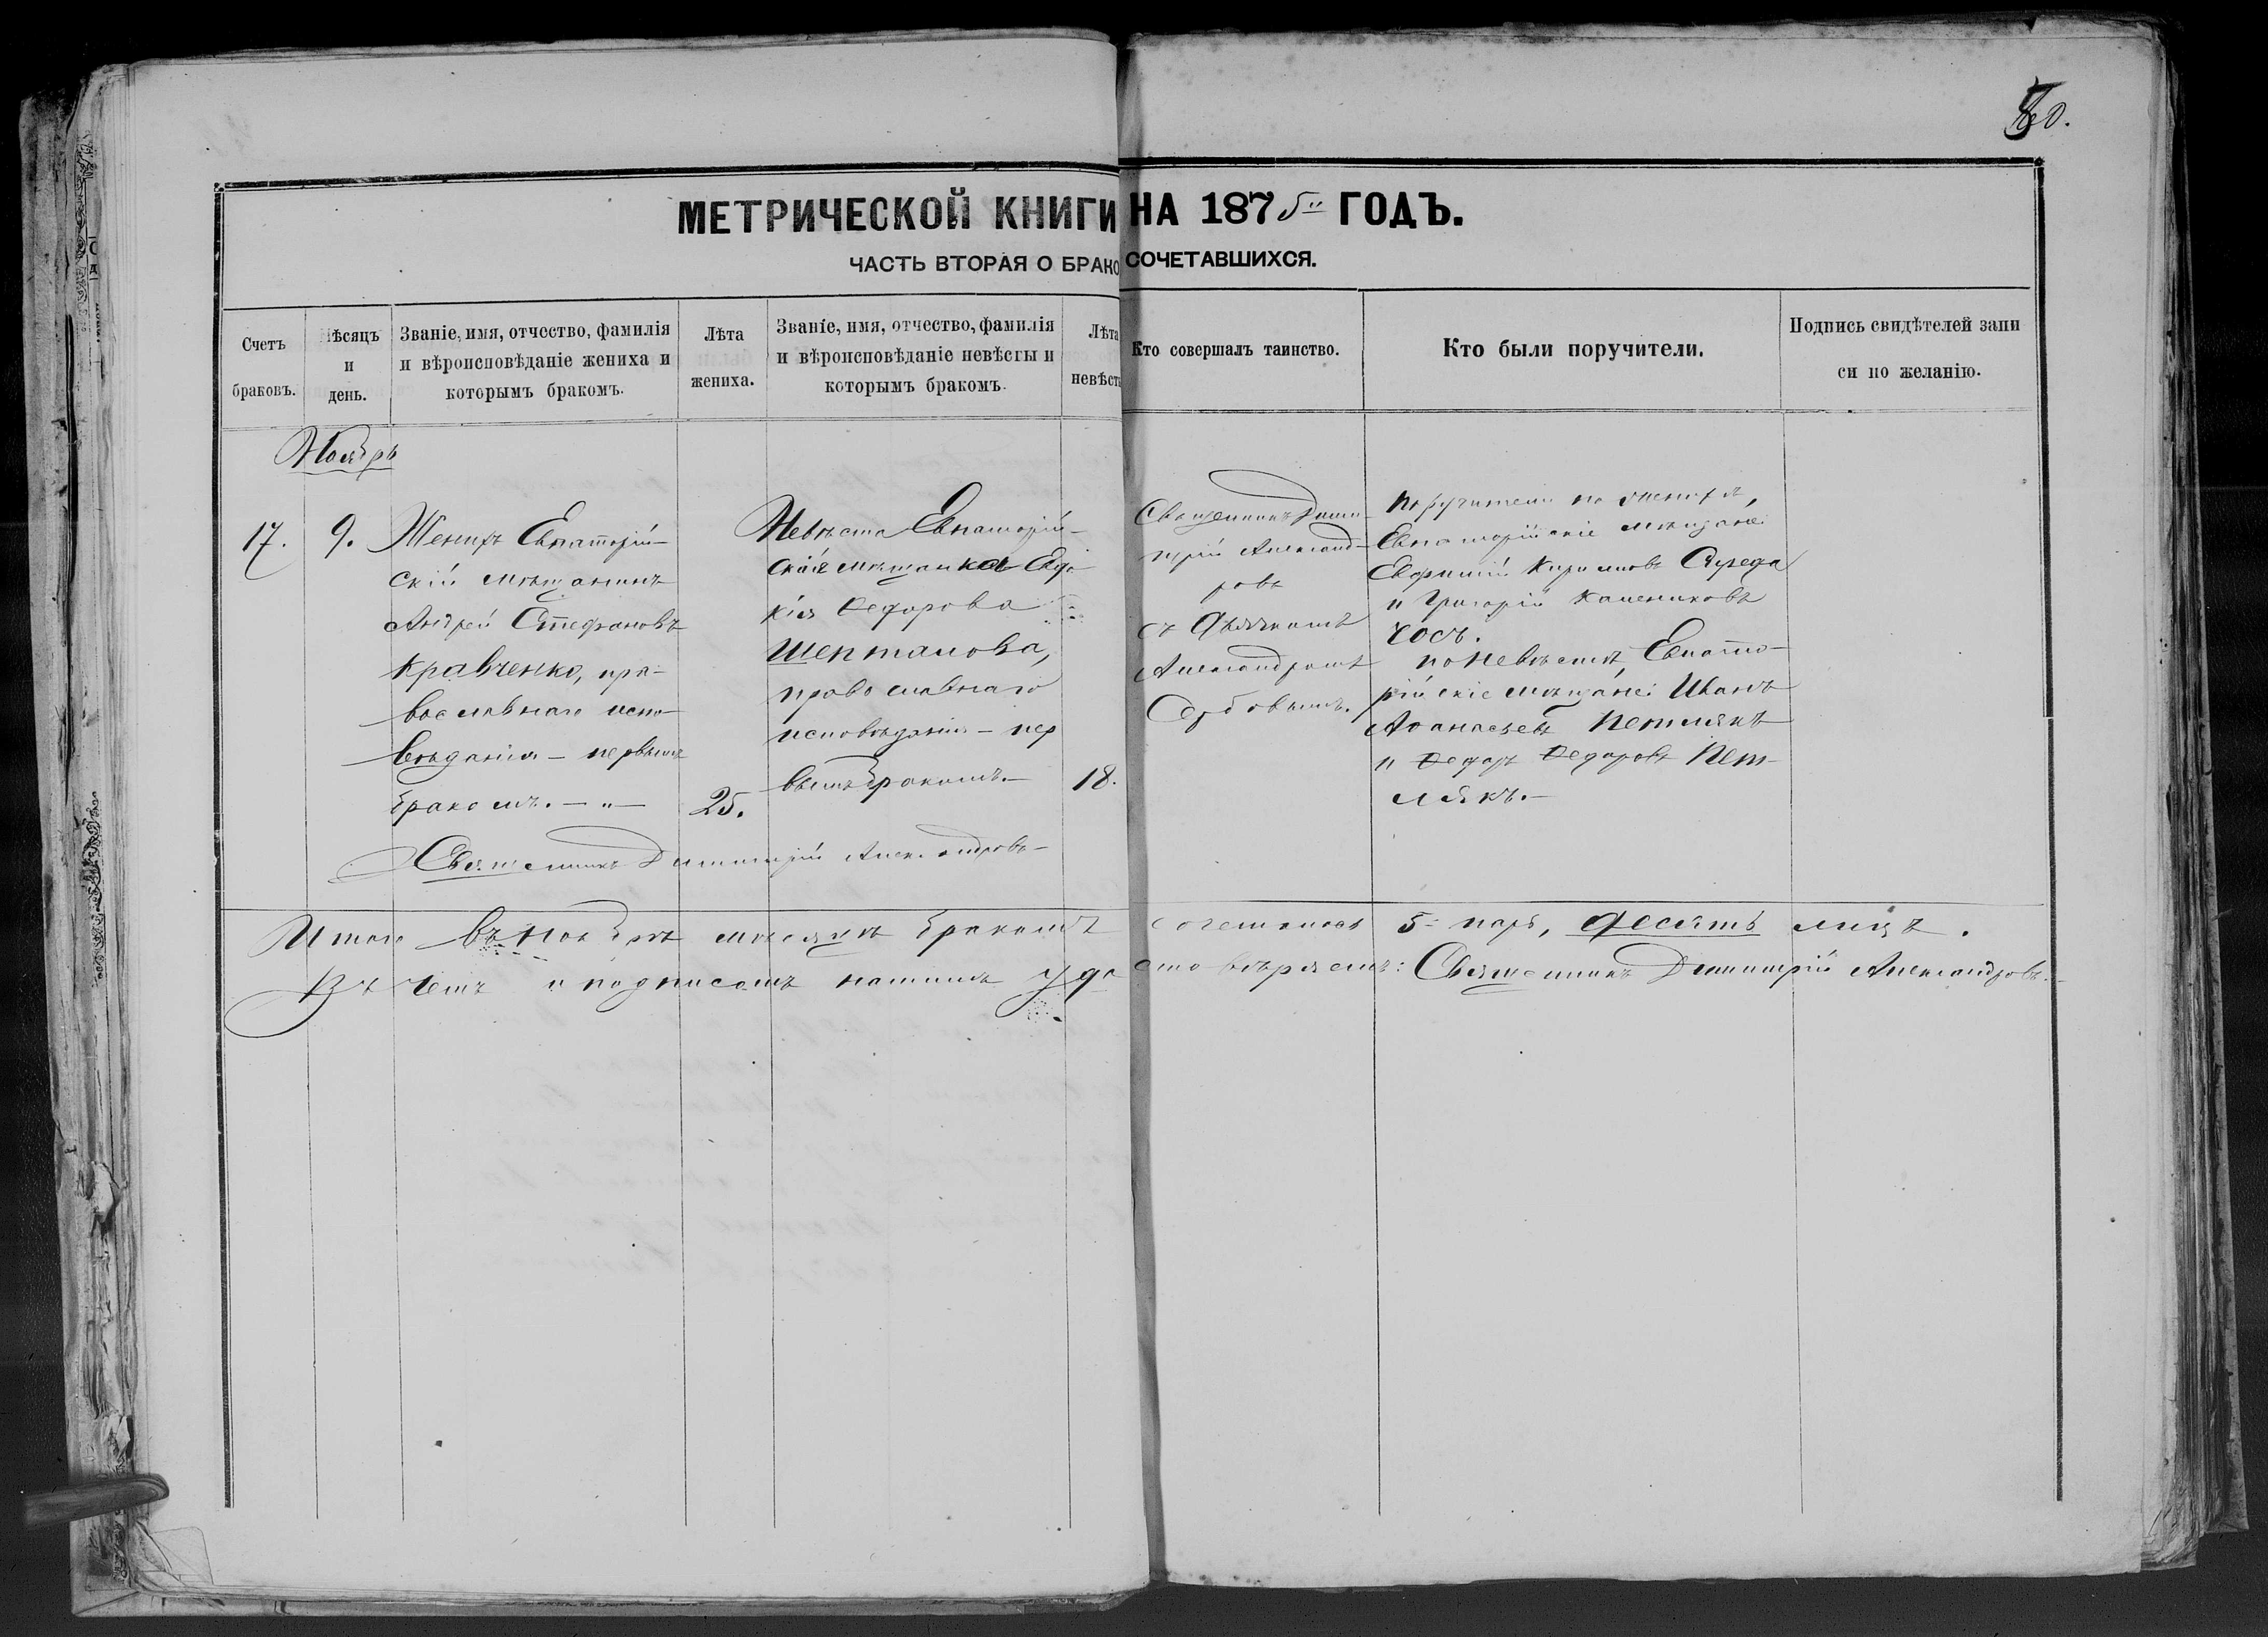 80.
МЕТРИЧЕСКОЙ КНИГИ НА 1875й ГОДЪ.
ЧАСТЬ ВТОРАЯ О БРАКОСОЧЕТАВШИХСЯ.
Счетъ
браковъ.
Мѣсяцъ
и
день.
Званіе, имя, отчество, фамилія
и вѣроисповѣданіе жениха и
которымъ бракомъ.
Лѣта
жениха.
Званіе, имя, отчество, фамилія
и вѣроисповѣданіе невѣсты и
которымъ бракомъ.
Лѣта
невѣсты
Кто совершалъ таинство.
Кто были поручители.
Подпись свидѣтелей запи
си по желанію.
Ноябрь
17.
9.
Женихъ Евпаторій-
скій мѣщанинъ
Андрей Стефановъ
Кравченко, пра-
вославнаго испо-
вѣданія – первымъ
бракомъ. – „ –
25.
Невѣста Евпаторій-
ская мѣщанка Евдо-
кія Ѳедорова
Шепталова,
православнаго
исповѣданія – пер
вымъ бракомъ. –
18.
Священникъ Дими-
трій Александ-
ровъ
съ Дьячкомъ
Александромъ
Сербовымъ.
Поручители по женихѣ,
Евпаторійскіе мѣщане:
Евфимій Кириловъ Середа
и Григорій
по невѣстѣ, Евпато-
рійскіе мѣщане: Иванъ
Аѳанасьевъ Петлякъ
и Ѳедоръ Ѳедоровъ Пет-
лякъ. –
Священникъ Димитрій Александровъ
Итого въ Ноябрѣ мѣсяцѣ бракомъ сочеталось 5 паръ, десять лицъ.
Въ чемъ и подписомъ нашимъ удостовѣряемъ: Священникъ Димитрій Александровъ.